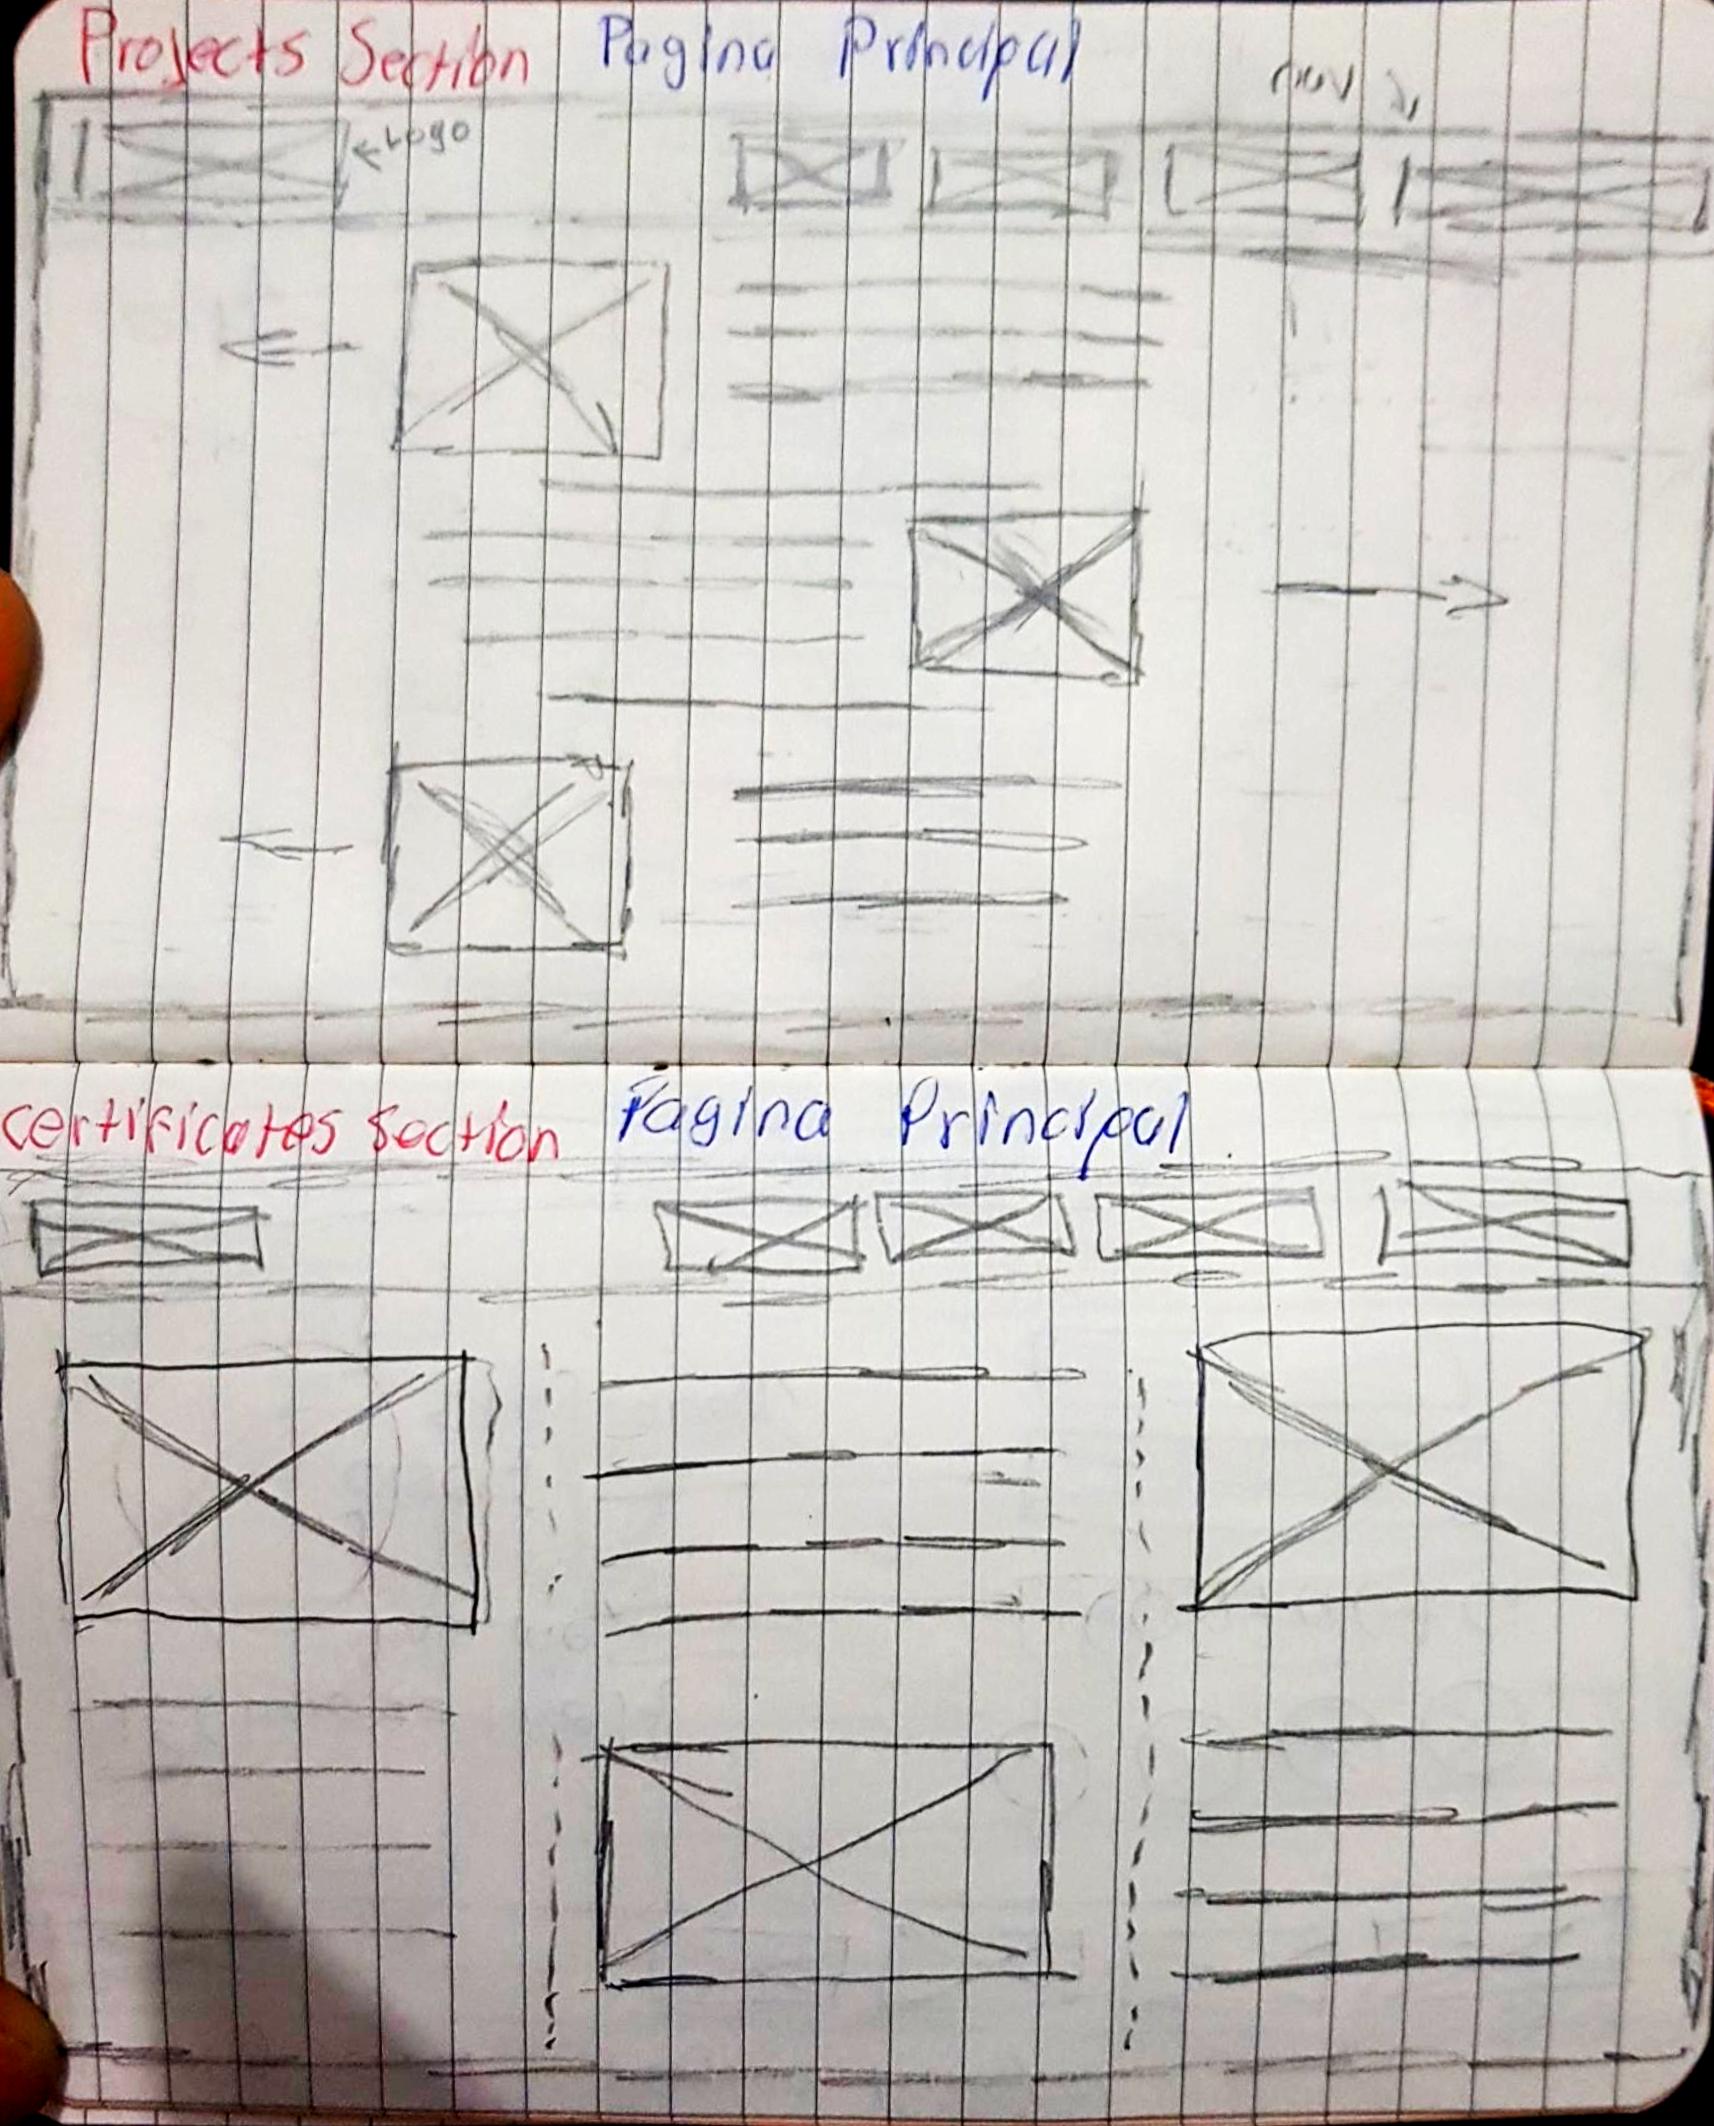 Projects Section Pagina Principal
nav
Logo
certificates section Pagina Principal